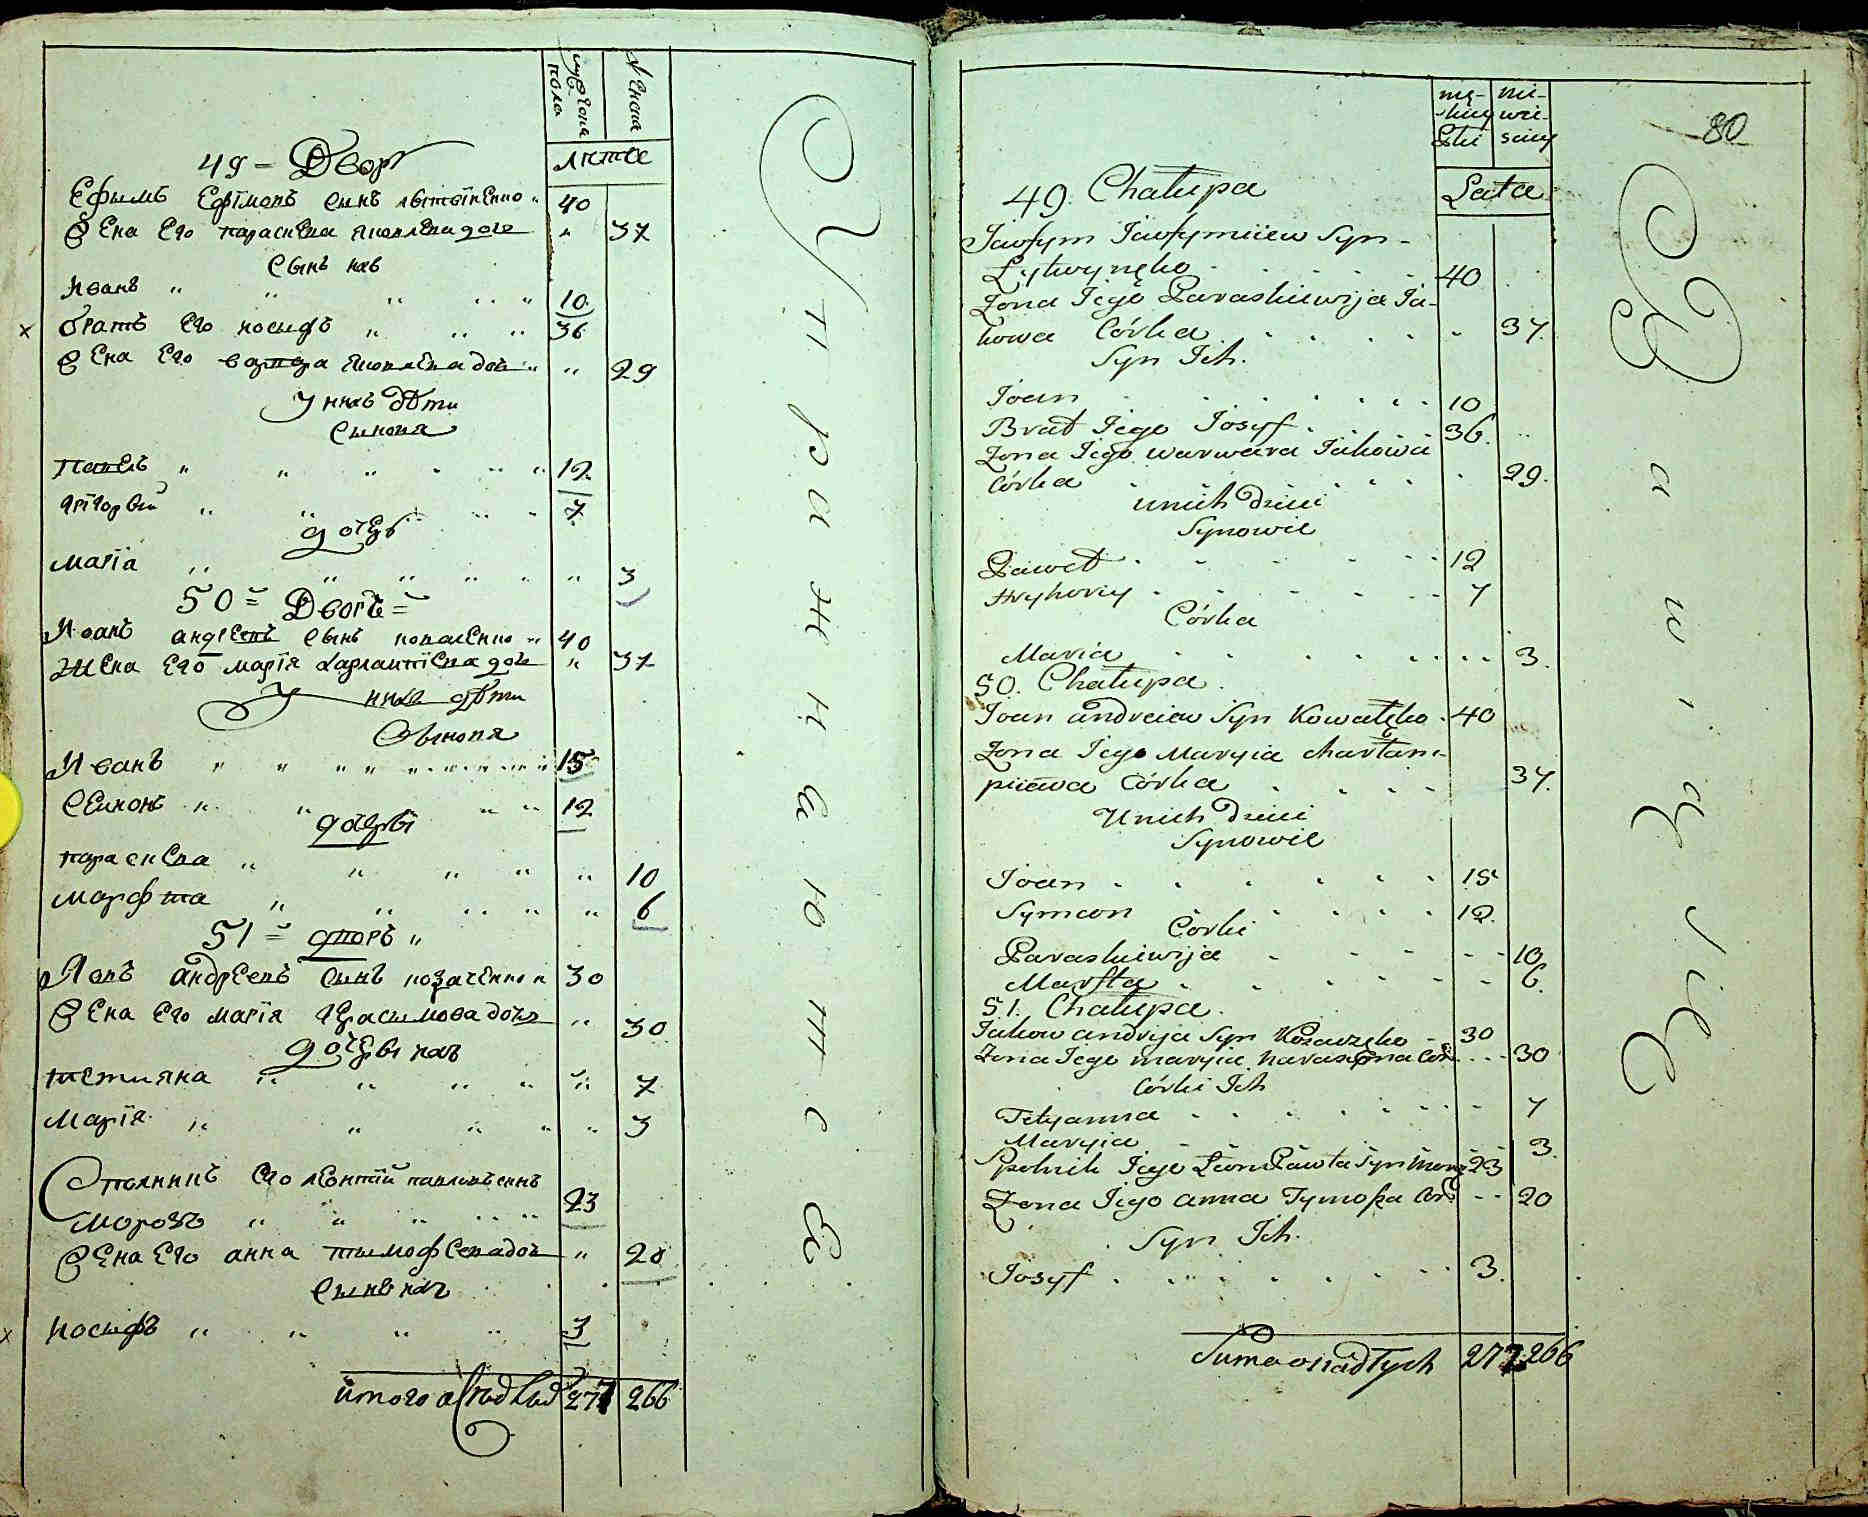 мужеска пола
женска
лита
49 = Дворъ
Ефымъ Ефімовъ сынъ литвіненко 40
Жена его параскева яковлева дочь 37
сынъ ихъ
Иванъ 10
братъ его иосифъ 36
Жена его варвара яковлева дочь 29
У нихъ дѣти
сыновя
павелъ 12
григорѣй 7
дочерь
марія 3
50 = Дворъ =
Иванъ андреевъ сынъ коваленко 40
жена его марія харлампіева дочь 37
У нихъ дѣти
Сыновя
Иванъ 15
Семионъ 12
дочерѣ
параскева 10
марфта 6
51 = дворъ
Яковъ андреевъ сынъ козаченко 30
Жена его марія герасимова дочь 30
дочери ихъ
тетияна 7
марія 3
Споликъ его леонтій павловъ синъ
морозъ 23
Жена его анна тымофеева дочь 20
сынъ ихъ
иосифъ 3
итого 277 266
Уприжнеютсе
80
mę-skiey Płci
nie-wie-sciey
Lata
49. Chałupa
Jawfym Jawfymiiew Syn
Lytwynęko 40
Zona Jego Paraskiewija Ja-
kowa Córka 37.
Syn Jch.
Joan 10
Brat Jego Josyf 36.
Zona Jego warwara Jakowa
Córka 29.
unich Dzieci
Synowie
Paweł 12
Hryhoriy 7
Córka
Maria 3.
50. Chałupa
Joan andreiew Syn Kowalęko 40
Zona Jego Maryia Charłam-
piiewa Córka 37.
Unich Dzieci
Synowie
Joan 15
Symeon 12.
Corki
Paraskiewija 10
Marfta 6.
51. Chałupa
Jakow andrija Syn Kozaczęko 30
Zona Jego maryia harasymа Cór. 30
Córki Jch
Tetyanna 7
Maryia 3.
Spolnik Jego Leon Pawła Syn Moroz 23
Zona Jego anna Tymofia Cór. 20
Syn Jch.
Josyf 3.
Suma osiadłych 277. 266
Prawiąsie